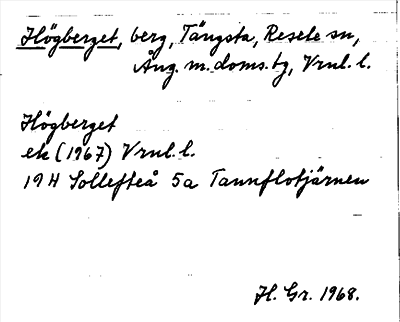 Högberget, berg, Tängsta, Resele sn,
Ång. m. doms. tg, Vrnl. l.
Högberget
ek (1967) Vrnl. l.
19 H Sollefteå 5a Tannflotjärnen
H. Gr. 1968.